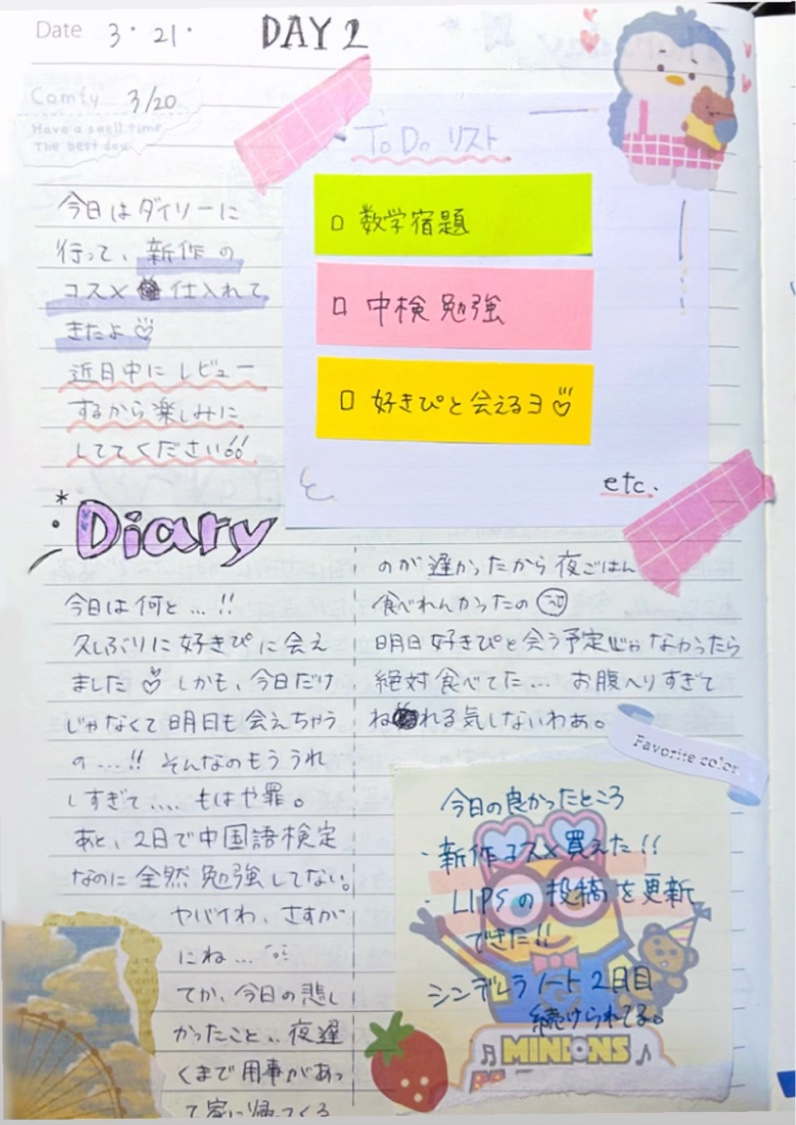 Date 3・21・ DAY 2
Comfy 3/20
Have a swell time
The best day
今日はダイソーに
行って、新作の
コスメ 仕入れて
きたよ♡
近日中にレビュー
するから楽しみに
しててください!!
To Do リスト
□ 数学宿題
□ 中検 勉強
□ 好きぴと会えるヨ♡
etc.
Diary
今日は何と…!!
久しぶりに好きぴに会え
ました♡ しかも、今日だけ
じゃなくて明日も会えちゃう
の…!! そんなのもううれ
しすぎて…. もはや罪。
あと、2日で中国語検定
なのに全然勉強してない。
ヤバイわ、さすが
にね…
てか、今日の悲し
かったこと… 夜遅
くまで用事があっ
て家に帰ってくる
のが遅かったから夜ごはん
食べれんかったの
明日好きぴと会う予定じゃなかったら
絶対食べてた… お腹へりすぎて
ねれる気しないわぁ。
Favorite color
今日の良かったところ
・新作コスメ買えた!!
・LIPSの投稿を更新
できた!!
シンデレラノート2日目
続けられてる。
MINIONS